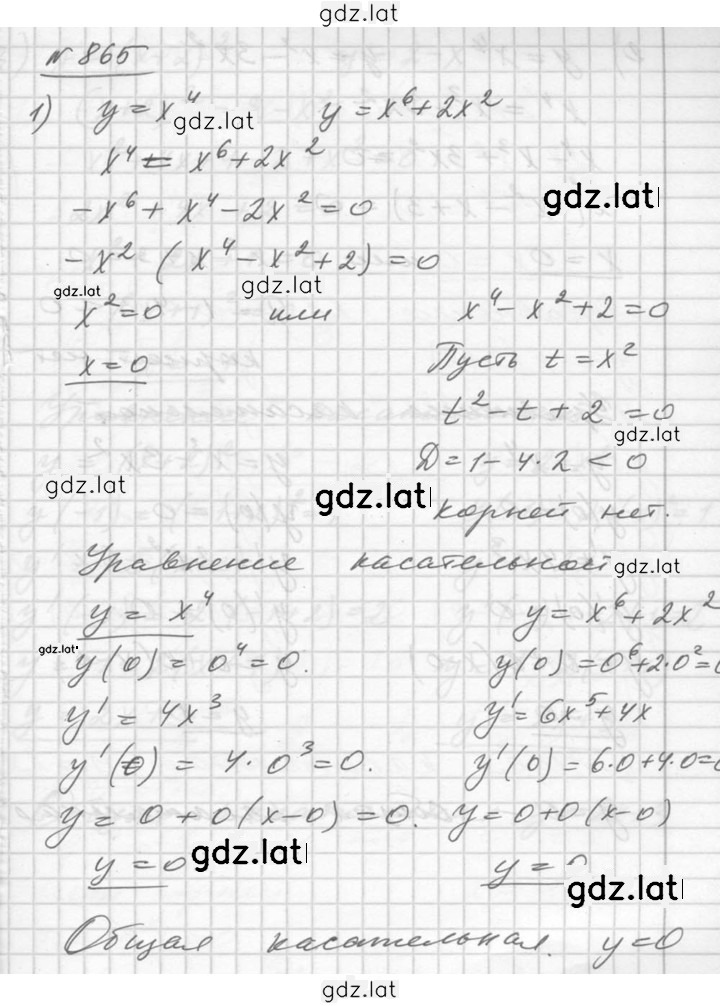 gdz.lat
№865
1) y = x⁴ y = x⁶ + 2x²
gdz.lat
x⁴ = x⁶ + 2x²
gdz.lat
-x⁶ + x⁴ - 2x² = 0
-x² (x⁴ - x² + 2) = 0
gdz.lat gdz.lat
x² = 0 или x⁴ - x² + 2 = 0
x = 0 Пусть t = x²
t² - t + 2 = 0
gdz.lat
Д = 1 - 4·2 < 0
gdz.lat gdz.lat
корней нет.
Уравнение касательной gdz.lat
y = x⁴ y = x⁶ + 2x²
gdz.lat
y(0) = 0⁴ = 0. y(0) = 0⁶+2·0²=0
y' = 4x³ y' = 6x⁵ + 4x
y'(0) = 4·0³ = 0. y'(0) = 6·0+4·0=0
y = 0 + 0(x-0) = 0. y = 0+0(x-0)
y = 0 gdz.lat y = 0
gdz.lat
Общая касательная. y=0
gdz.lat